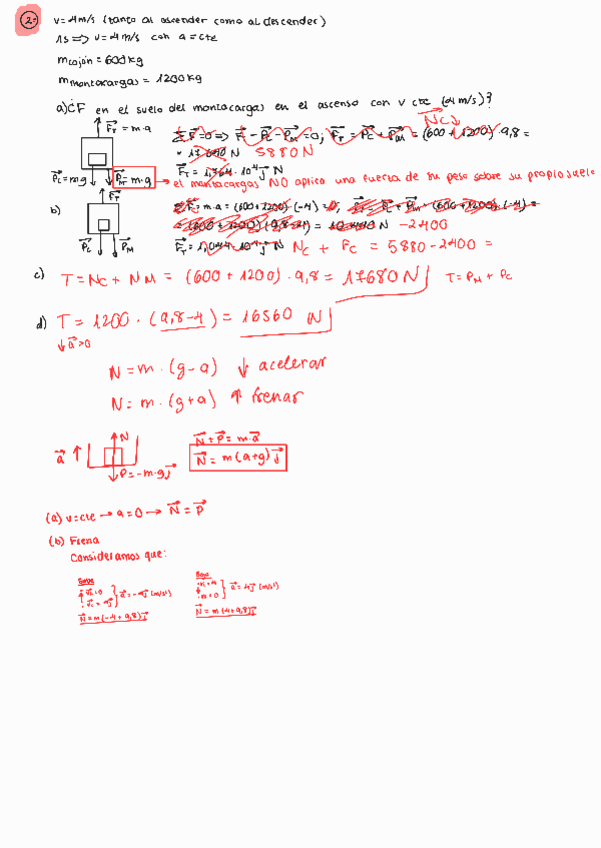 2. v = 4 m/s (tanto al ascender como al descender)
1s ⇒ v = 4 m/s con a = cte
m cajón = 600 kg
m montacargas = 1200 kg
a) ¿F en el suelo del montacargas en el ascenso con v cte (4 m/s)?
F_T = m·a
N_C ↓
ΣF = 0 ⇒ F_T - P_C - P_M = 0; F_T = P_C + P_M = (600 + 1200) · 9,8 =
= 17640 N 5880 N
P_C = m·g P_M = m·g
F_T = 1,764 · 10⁴ j N
el montacargas NO aplica una fuerza de su peso sobre su propio suelo
b)
F_T
P_C P_M
ΣF = m·a = (600 + 1200) · (-4)
= (600 + 1200) (9,8 - 4) = 10440 N -2400
F_T = 1,044 · 10⁴ j N N_C + F_C = 5880 - 2400 =
c) T = N_C + N_M = (600 + 1200) · 9,8 = 17680 N T = P_M + P_C
d) T = 1200 · (9,8 - 4) = 16560 N
↓ a > 0
N = m · (g - a) ↓ acelerar
N = m · (g + a) ↑ frenar
a ↑ N
P = -m·g j
N + P = m·a
N = m(a + g) j
(a) v = cte → a = 0 → N = P
(b) Frena
Consideramos que:
Sube
a = -4 j (m/s²)
N = m(-4 + 9,8) j
a = 4 j (m/s²)
N = m(4 + 9,8) j